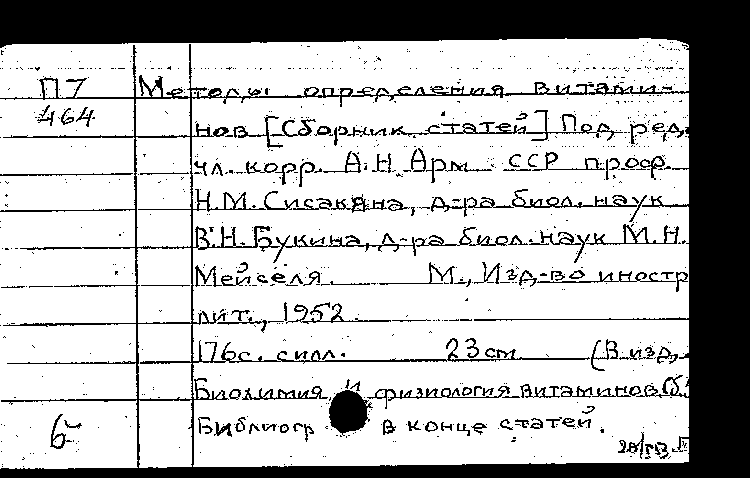 П7 Методы определения витами-
464 нов [Сборник статей] Под ред.
чл. корр. А.Н Арм ССР проф.
Н.М. Сисакяна, д-ра биол. наук
В.Н. Букина, д-ра биол. наук М.Н.
Мейселя. М., Изд-во иностр
лит., 1952
176с. силл. 23см (В изд.
Биохимия и физиология витаминов
Библиогр в конце статей.
б